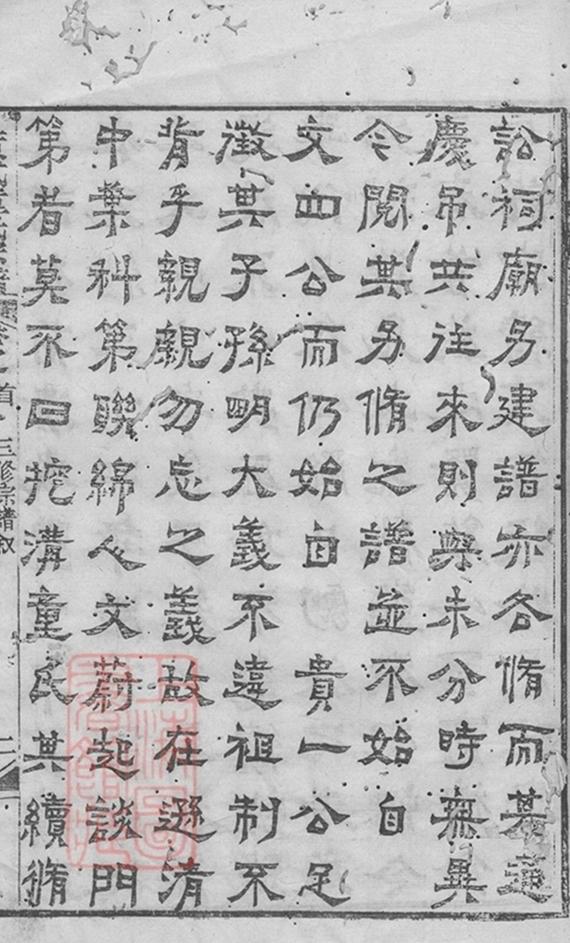 訟祠廟另建譜亦各脩而墓道
慶吊共往來則與未分時無異
今閱其另脩之譜並不始自
文四公而仍始自 貴一公足
徵其子孫明大義不違祖制不
背乎親親勿忘之義故在遜清
中葉科第聯綿人文蔚起談門
第者莫不曰挖溝童氏其續脩
首 三修宗譜叙